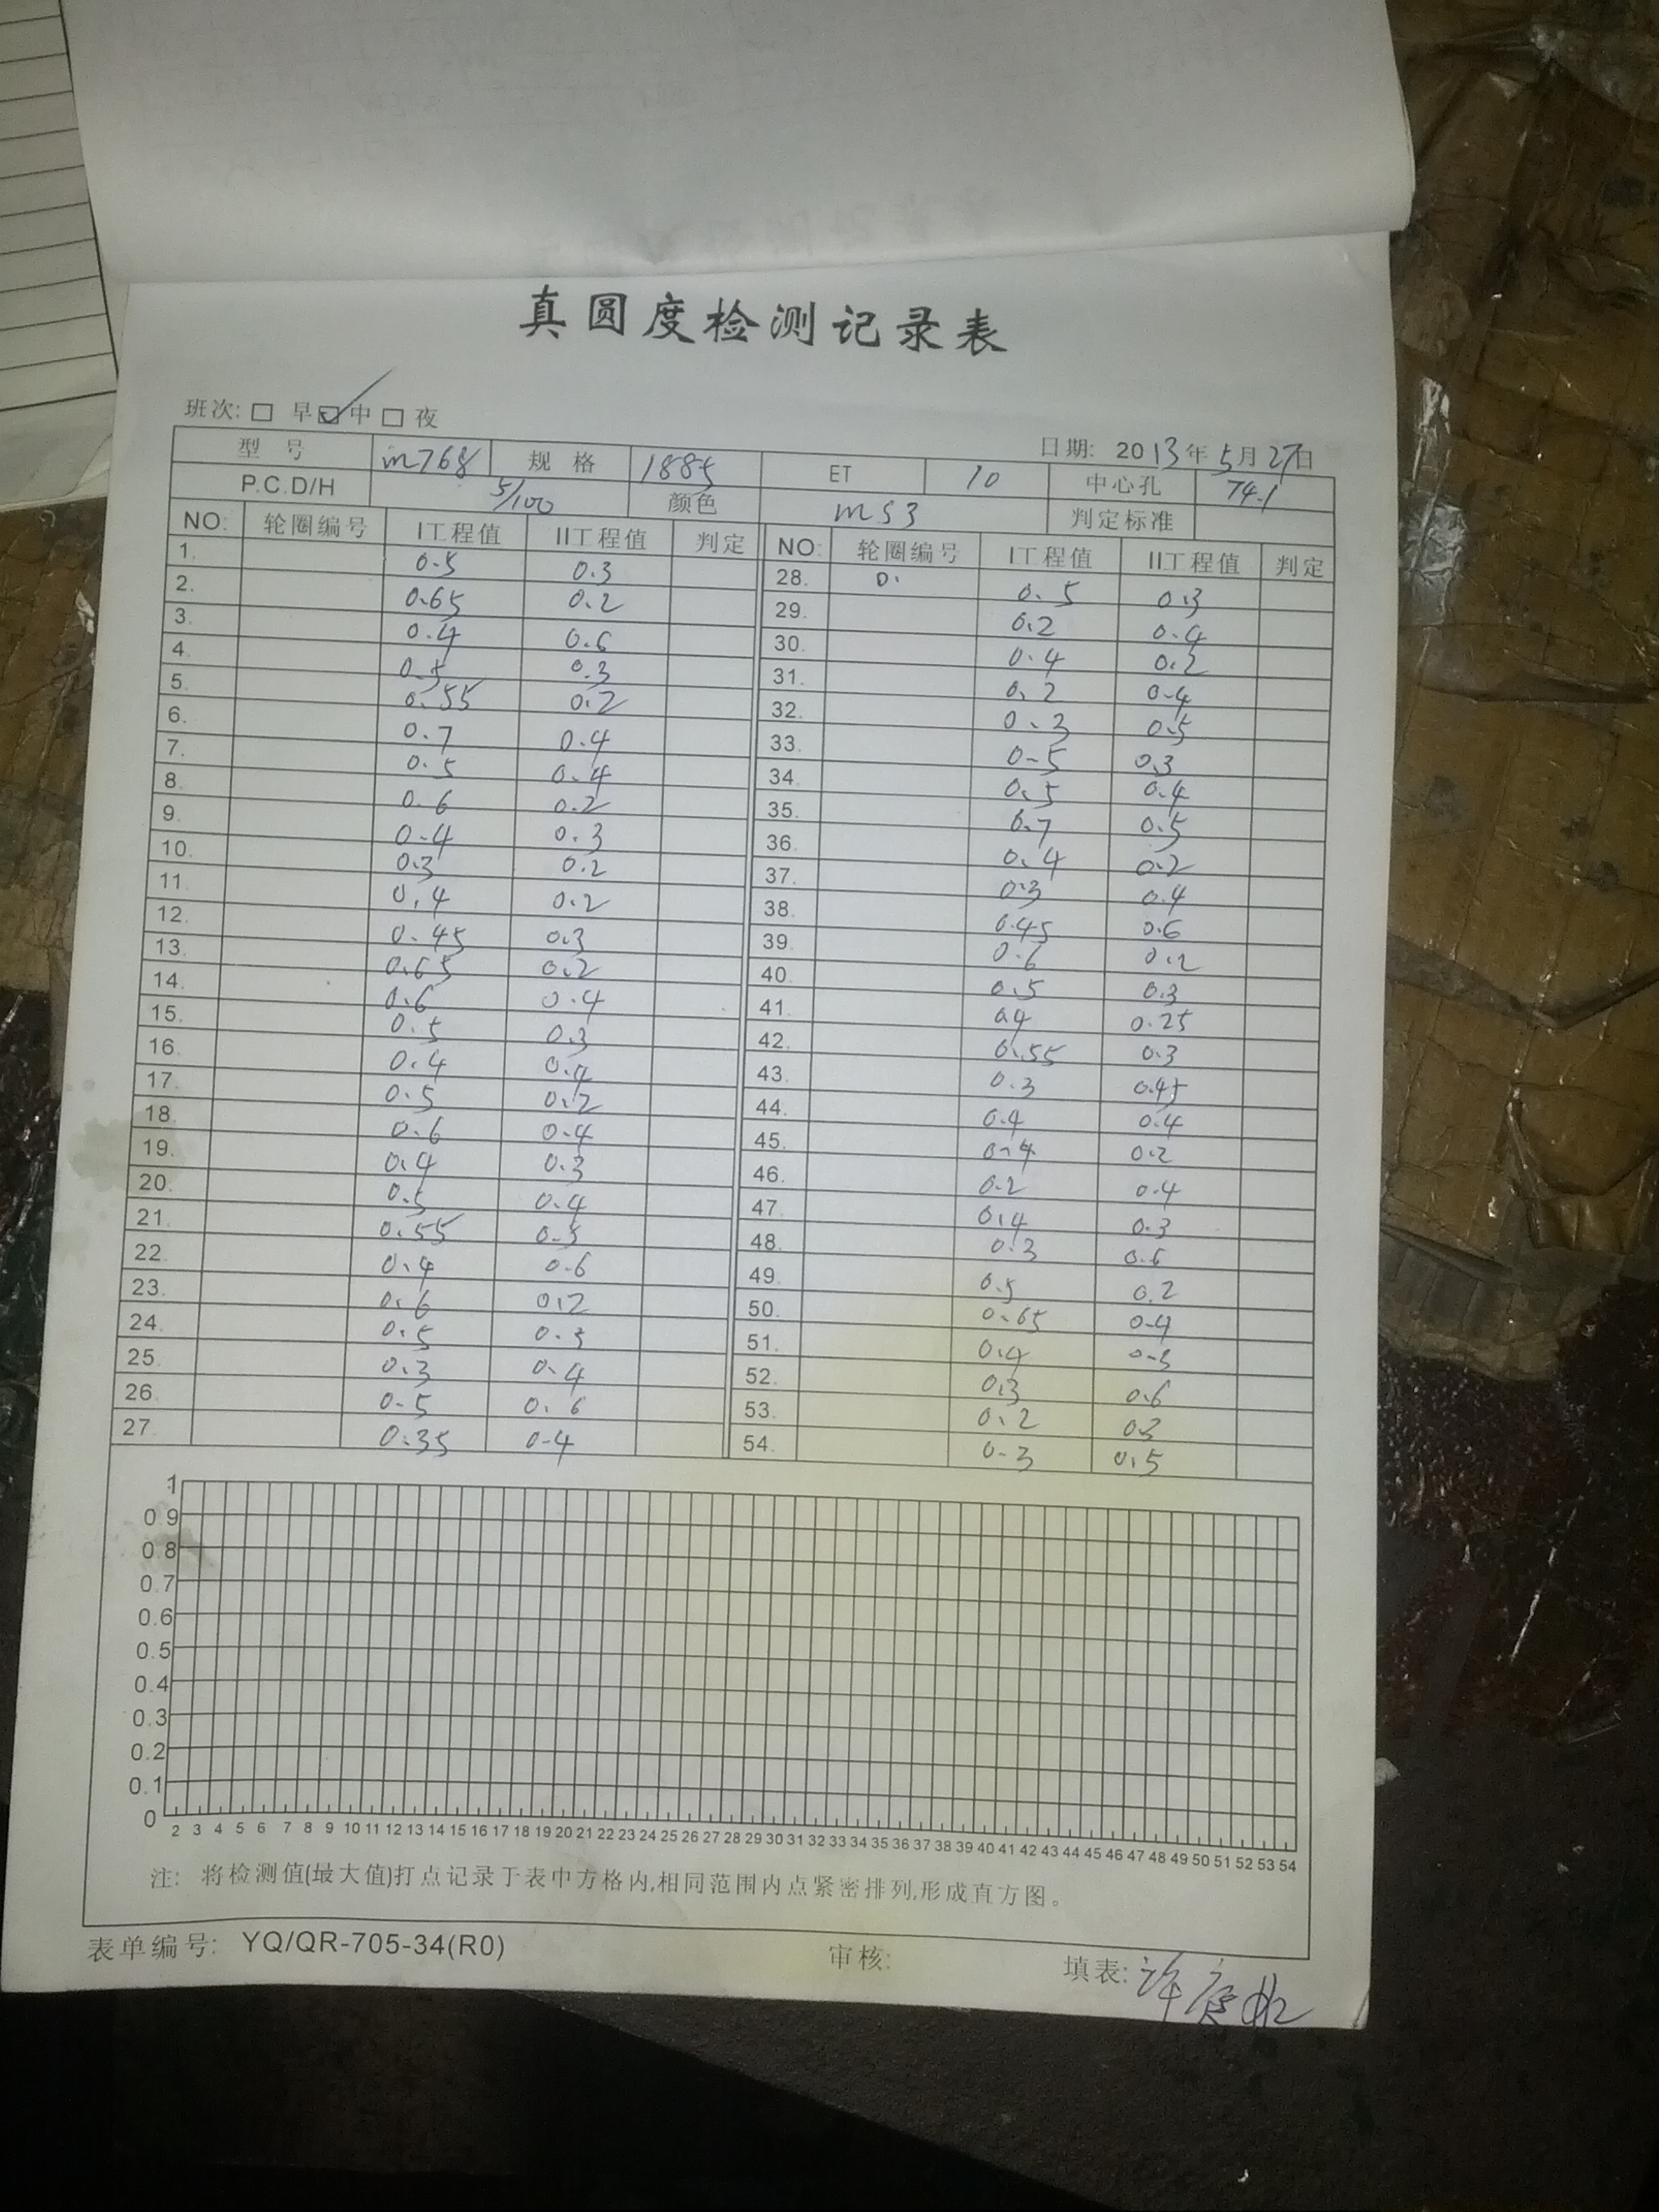 真圆度检测记录表
班次: □ 早 ☑ 中 □ 夜
日期: 2013年5月27日
型号 m768 规格 1885 ET 10 中心孔 74.1
P.C.D/H 5/100 颜色 MS3 判定标准
NO: 轮圈编号 I工程值 II工程值 判定 NO: 轮圈编号 I工程值 II工程值 判定
1. 0.5 0.3 28. 0. 0.5 0.3
2. 0.65 0.2 29. 0.2 0.4
3. 0.4 0.6 30. 0.4 0.2
4. 0.5 0.3 31. 0.2 0.4
5. 0.55 0.2 32. 0.3 0.5
6. 0.7 0.4 33. 0.5 0.3
7. 0.5 0.4 34. 0.5 0.4
8. 0.6 0.2 35. 0.7 0.5
9. 0.4 0.3 36. 0.4 0.2
10. 0.3 0.2 37. 0.3 0.4
11. 0.4 0.2 38. 0.45 0.6
12. 0.45 0.3 39. 0.6 0.2
13. 0.65 0.2 40. 0.5 0.3
14. 0.6 0.4 41. 0.4 0.25
15. 0.5 0.3 42. 0.55 0.3
16. 0.4 0.4 43. 0.3 0.45
17. 0.5 0.2 44. 0.4 0.4
18. 0.6 0.4 45. 0.4 0.2
19. 0.4 0.3 46. 0.2 0.4
20. 0.5 0.4 47. 0.4 0.3
21. 0.55 48. 0.3 0.6
22. 0.4 0.6 49. 0.5 0.2
23. 0.6 0.2 50. 0.65 0.4
24. 0.5 0.3 51. 0.4
25. 0.3 0.4 52. 0.3 0.6
26. 0.5 0.6 53. 0.2
27. 0.35 0.4 54. 0.3 0.5
1
0.9
0.8
0.7
0.6
0.5
0.4
0.3
0.2
0.1
0
2 3 4 5 6 7 8 9 10 11 12 13 14 15 16 17 18 19 20 21 22 23 24 25 26 27 28 29 30 31 32 33 34 35 36 37 38 39 40 41 42 43 44 45 46 47 48 49 50 51 52 53 54
注: 将检测值(最大值)打点记录于表中方格内,相同范围内点紧密排列,形成直方图。
表单编号: YQ/QR-705-34(R0) 审核: 填表: 许